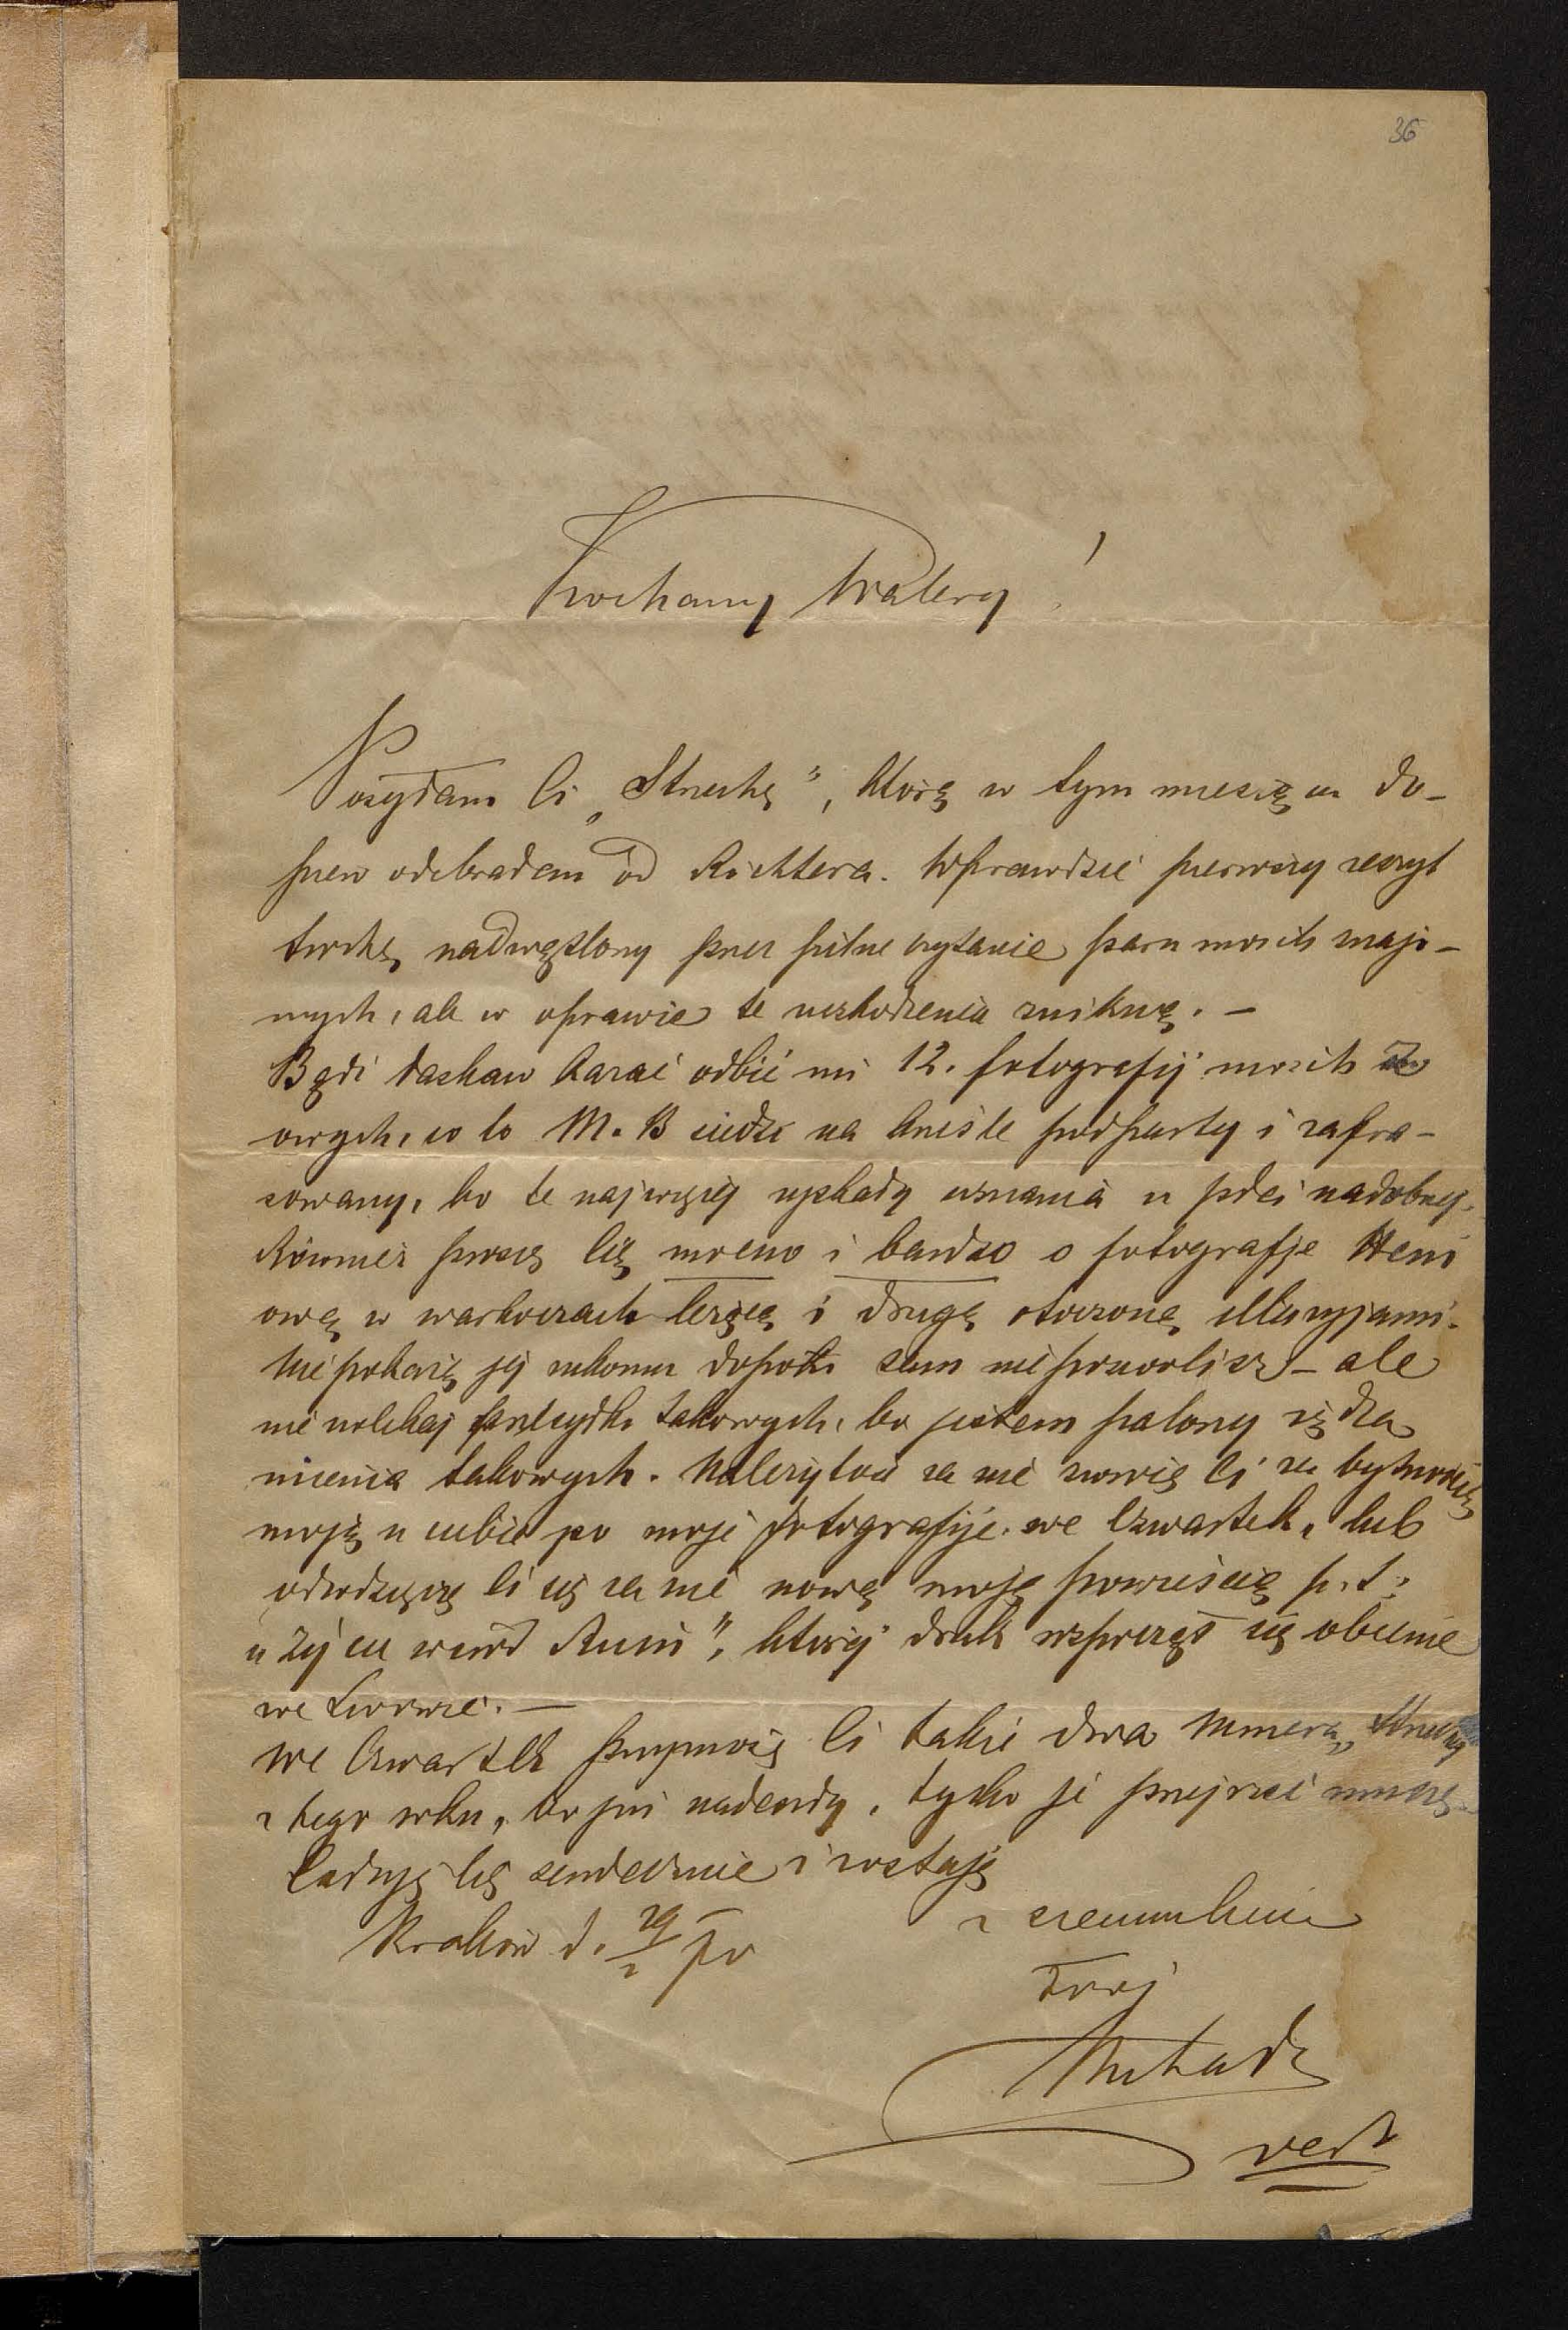 36
Kochany Walery!
Posyłam Ci „Strzechę", którą w tym miesiącu do-
piero odebrałem od Richtera. Wprawdzie pierwszy zeszyt
trochę nadwątlony przez pilne czytanie paru moich znajo-
mych, ale w oprawie te uszkodzenia znikną. —
Bądź łaskaw kazać odbić mi 12. fotografij moich
owych, co to M. B siedzi na krześle podparty i zafra-
sowany, bo te najwięcej zyskały uznania u płci nadobnej.
Również proszę Cię mocno i bardzo o fotografje Heni
ową w warkoczach leżącą i drugą otoczoną illuzyjami.
Nie pokażę jej nikomu dopóki sam nie pozwolisz – ale
nie zwlekaj przesyłki takowych, bo jestem palony żądzą
mienia takowych. Należytość za nie zwrócę Ci za bytnością
moją u ciebie po moje fotografije we Czwartek, lub
odwdzięczę Ci się za nie nową moją powieścią p. t.
„Życie wśród Ruin", której druk rozpoczął się obecnie
we Lwowie. —
We Czwartek przyniosę Ci także dwa numera „Strzechy
z tego roku, bo już nadeszły, tylko je przejrzeć muszę
Całuję Cię serdecznie i zostaję
z szacunkiem
Kraków d. 29
Twój
vert